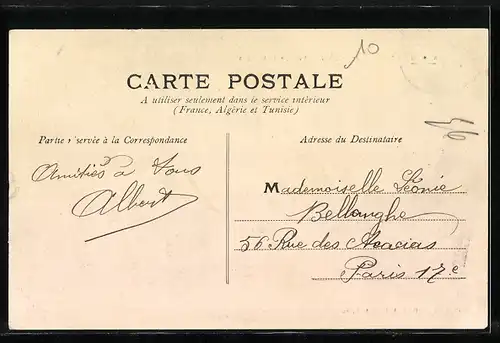 10
CARTE POSTALE
A utiliser seulement dans le service intérieur
(France, Algérie et Tunisie)
Partie r servée à la Correspondance
Adresse du Destinataire
Amitiés à tous
Albert
Mademoiselle Léonie
Bellanghe
56 Rue des Acacias
Paris 17.e